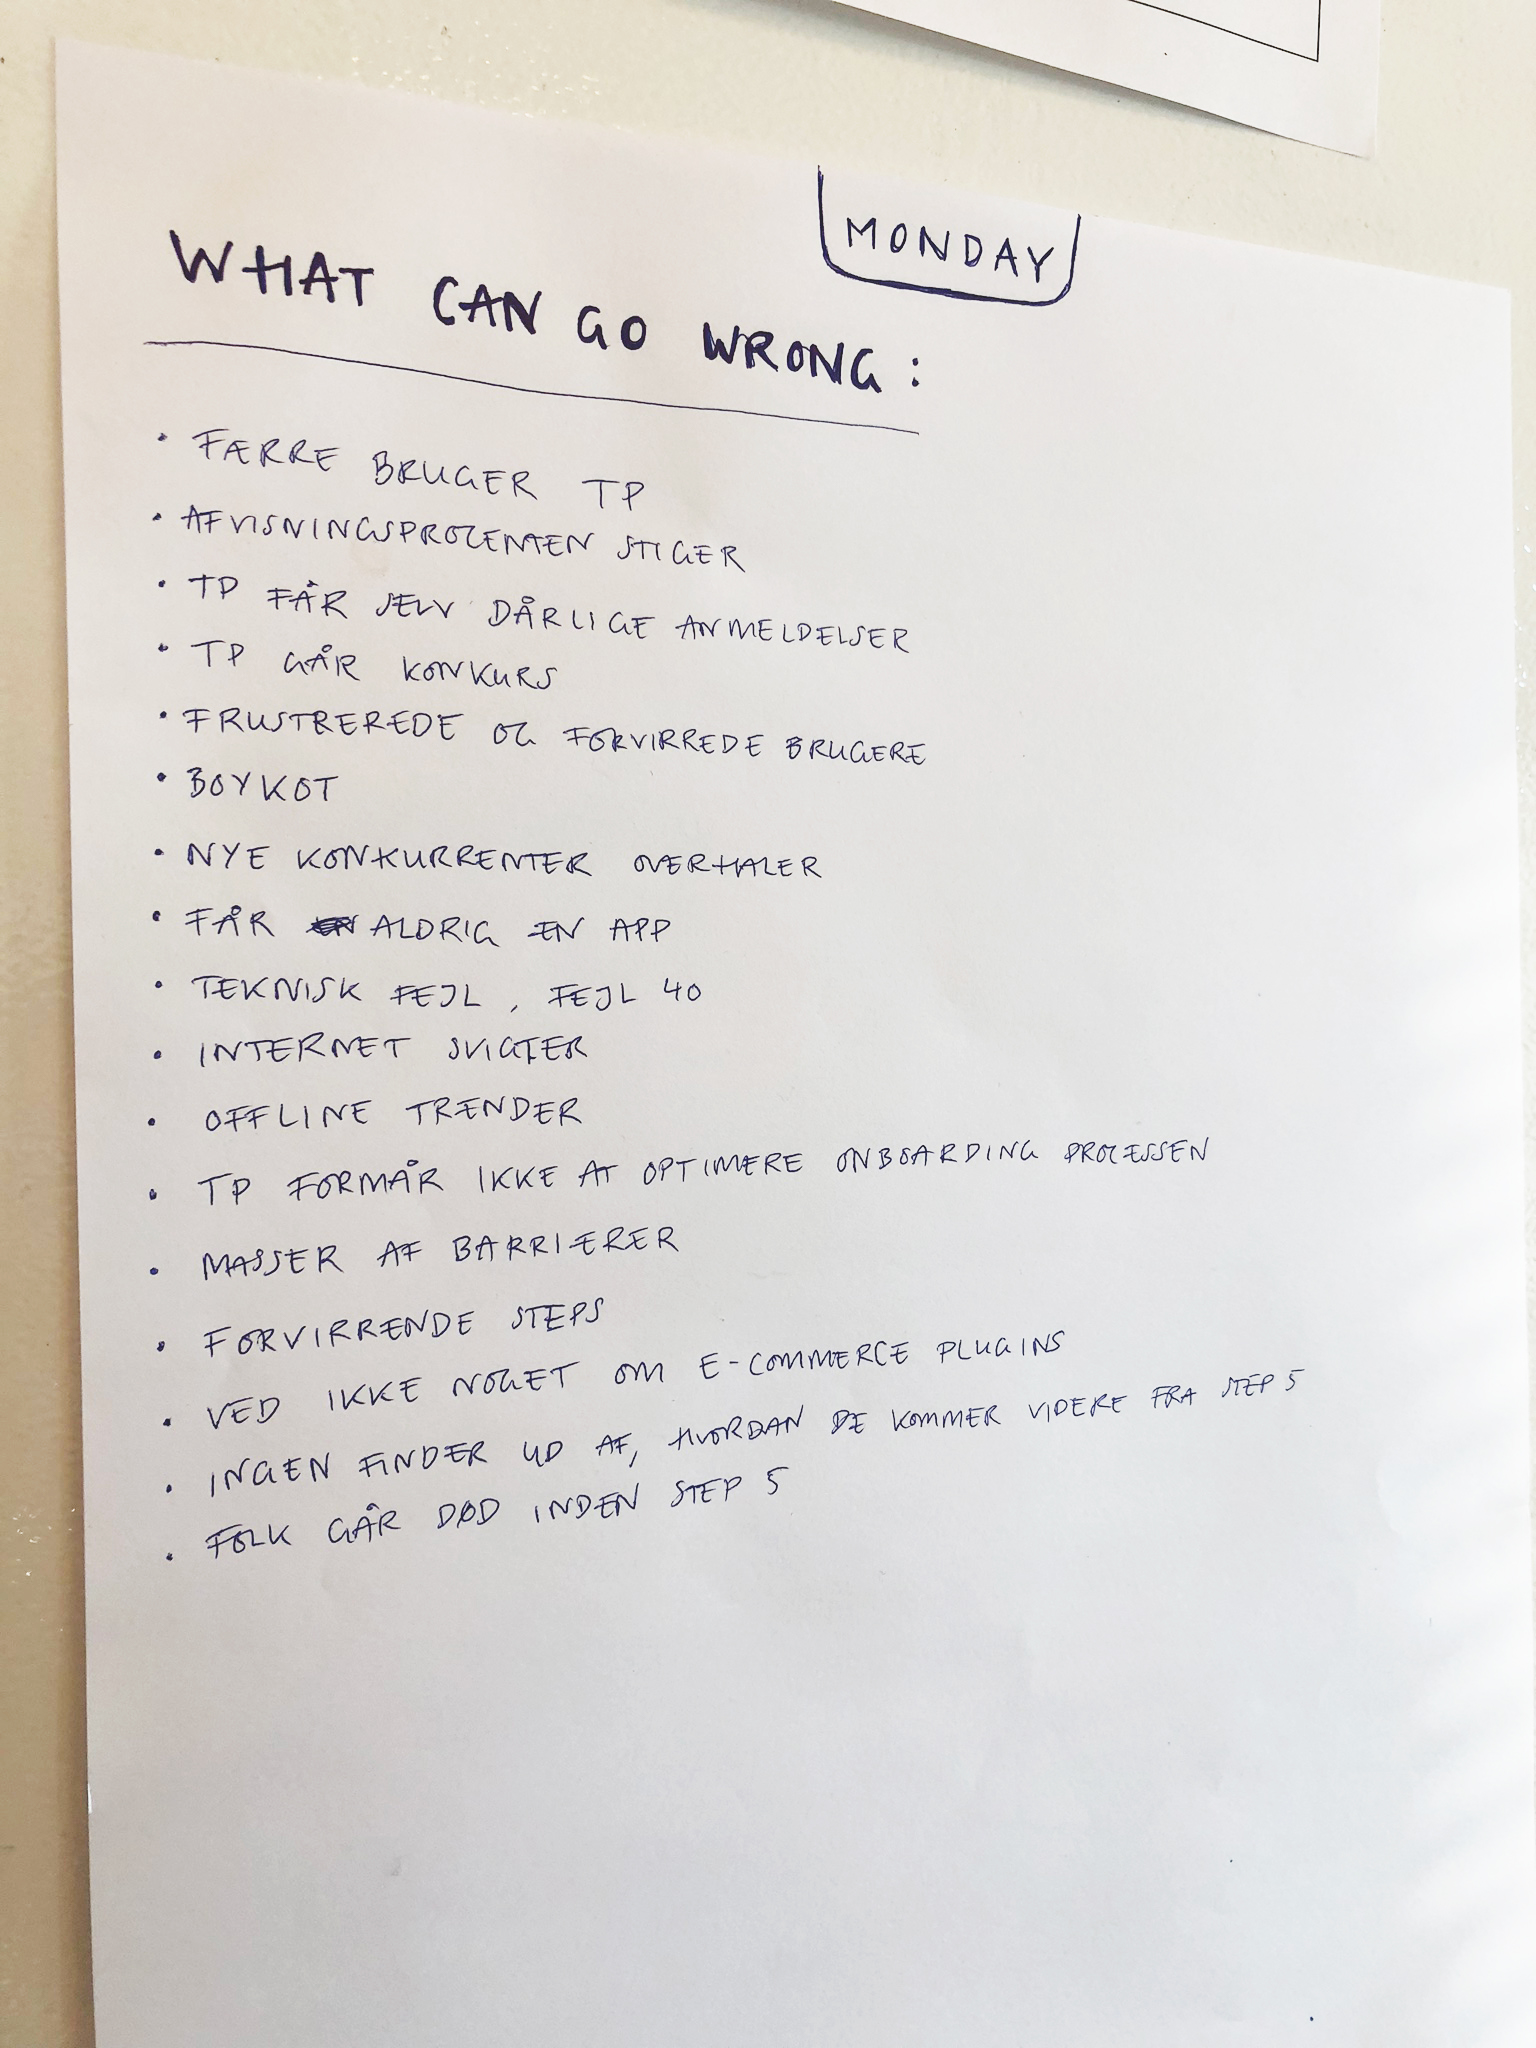 MONDAY
WHAT CAN GO WRONG:
• FÆRRE BRUGER TP
• AFVISNINGSPROCENTEN STIGER
• TP FÅR SELV DÅRLIGE ANMELDELSER
• TP GÅR KONKURS
• FRUSTREREDE OG FORVIRREDE BRUGERE
• BOYKOT
• NYE KONKURRENTER OVERHALER
• FÅR ALDRIG EN APP
• TEKNISK FEJL, FEJL 40
• INTERNET SVIGTER
• OFFLINE TRENDER
• TP FORMÅR IKKE AT OPTIMERE ONBOARDING PROCESSEN
• MASSER AF BARRIERER
• FORVIRRENDE STEPS
• VED IKKE NOGET OM E-COMMERCE PLUGINS
• INGEN FINDER UD AF, HVORDAN DE KOMMER VIDERE FRA STEP 5
• FOLK GÅR DØD INDEN STEP 5